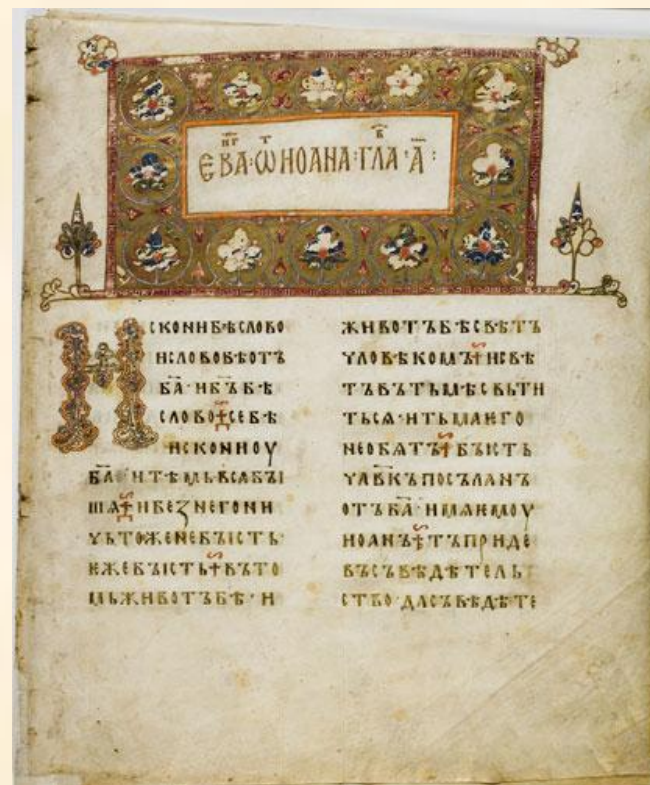 ЕВА·Ѿ ИОАНА·ГЛА·А҃:
ИСКОНИБѢСЛОВО
ИСЛОВОБѢОТЪ
БА҃·ИБЪ҃БѢ
СЛОВО СЕБѢ
ИСКОНИОУ
БА҃ ИТѢМЬВСꙖБЪІ
ШѦ ИБЕЗНЕГОНИ
ЧЬТОЖЕНЕБЪІСТЬ
ЕЖЕБЪІСТЬ ВЪТО
МЬЖИВОТЪБѢ·И
ЖИВОТЪБѢСВѢТЪ
ЧЛОВѢКОМЪ ИСВѢ
ТЪВЪТЬМѢСВЬТИ
ТЬСѦ·ИТЬМАѤГО
НЕОБѦТЪ БЪІСТЬ
ЧЛВ҃КЪПОСЪЛАНЪ
ОТЪБА҃·ИМѦѤМОУ
ИОАНЪ ТЪПРИДЕ
ВЪСЪВѢДѢТЕЛЬ
СТВО·ДАСЪВѢДѢТЕ